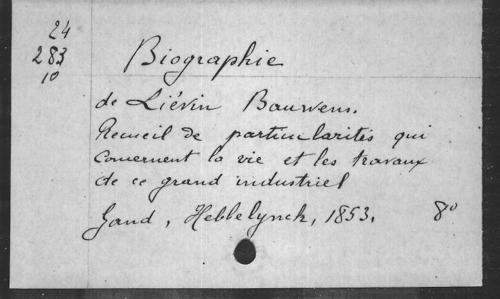 24
283
10
Biographie
de Liévin Bauwens.
Recueil de particularités qui
concernent la vie et les travaux
de ce grand industriel
Gand, Hebbelynck, 1853. 8°